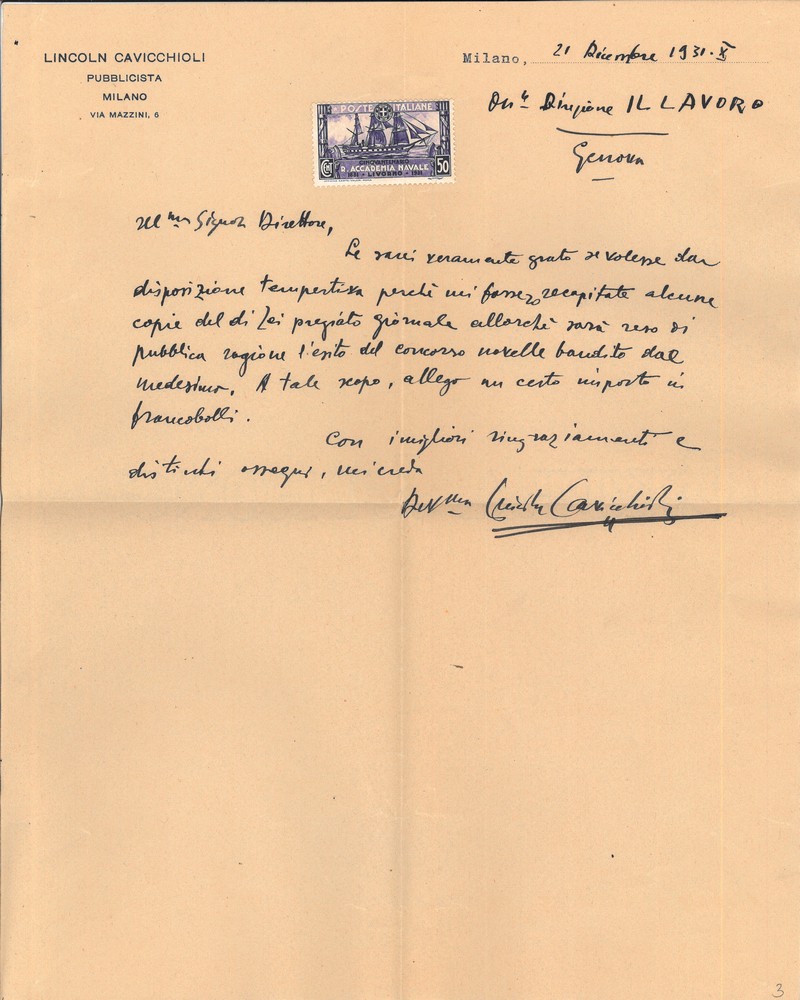 LINCOLN CAVICCHIOLI
PUBBLICISTA
MILANO
VIA MAZZINI, 6
Milano, 21 Dicembre 1931·X
On.le Direzione IL LAVORO
Genova
POSTE ITALIANE
CINQVANTENARIO
R. ACCADEMIA NAVALE
1881 - LIVORNO - 1931
CENT 50
Ill.mo Signor Direttore,
Le sarei veramente grato se volesse dar
disposizione tempertiva perchè mi fossero recapitate alcune
copie del di Lei pregiato giornale allorchè sarà reso di
pubblica ragione l'esito del concorso novelle bandito dal
medesimo. A tale scopo, allego un certo importo in
francobolli.
Con i migliori ringraziamenti e
distinti ossequi, mi creda
Dev.mo Lincoln Cavicchioli
3